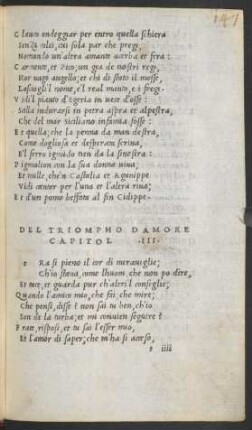 147
Glauco ondeggiar per entro quella schiera
Senza colei, cui sola par che pregi,
Nomando un'altra amante acerba et fera:
Carmente, et Pico; un già de nostri regi,
Hor vago augello; et chi di stato il mosse,
Lasciogli 'l nome, e'l real manto, e i fregi.
Vidi'l pianto d'Egeria in vece d'osse:
Scilla indurarsi in petra aspra et alpestra,
Che del mar Siciliano infamia fosse:
Et quella; che la penna da man destra,
Come dogliosa et desperata scriva,
E'l ferro ignudo ten da la sinestra:
Pigmalion con la sua donna viva;
Et mille, che'n Castalia et Aganippe
Vidi cantar per l'una et l'altra riva;
Et d'un pomo beffata al fin Cidippe.
DEL TRIOMPHO D'AMORE
CAPITOL .III.
e Ra sì pieno il cor di meraviglie;
Ch'io stava, come l'huom, che non pò dire,
Et tace, et guarda pur ch'altri 'l consiglie;
Quando l'amico mio, che fai, che mire;
Che pensi, disse? non sai tu ben, ch'io
Son de la turba; et mi convien seguire?
Frate, risposi, et tu sai l'esser mio,
Et l'amor di saper; che m'ha sì acceso,
t iiii